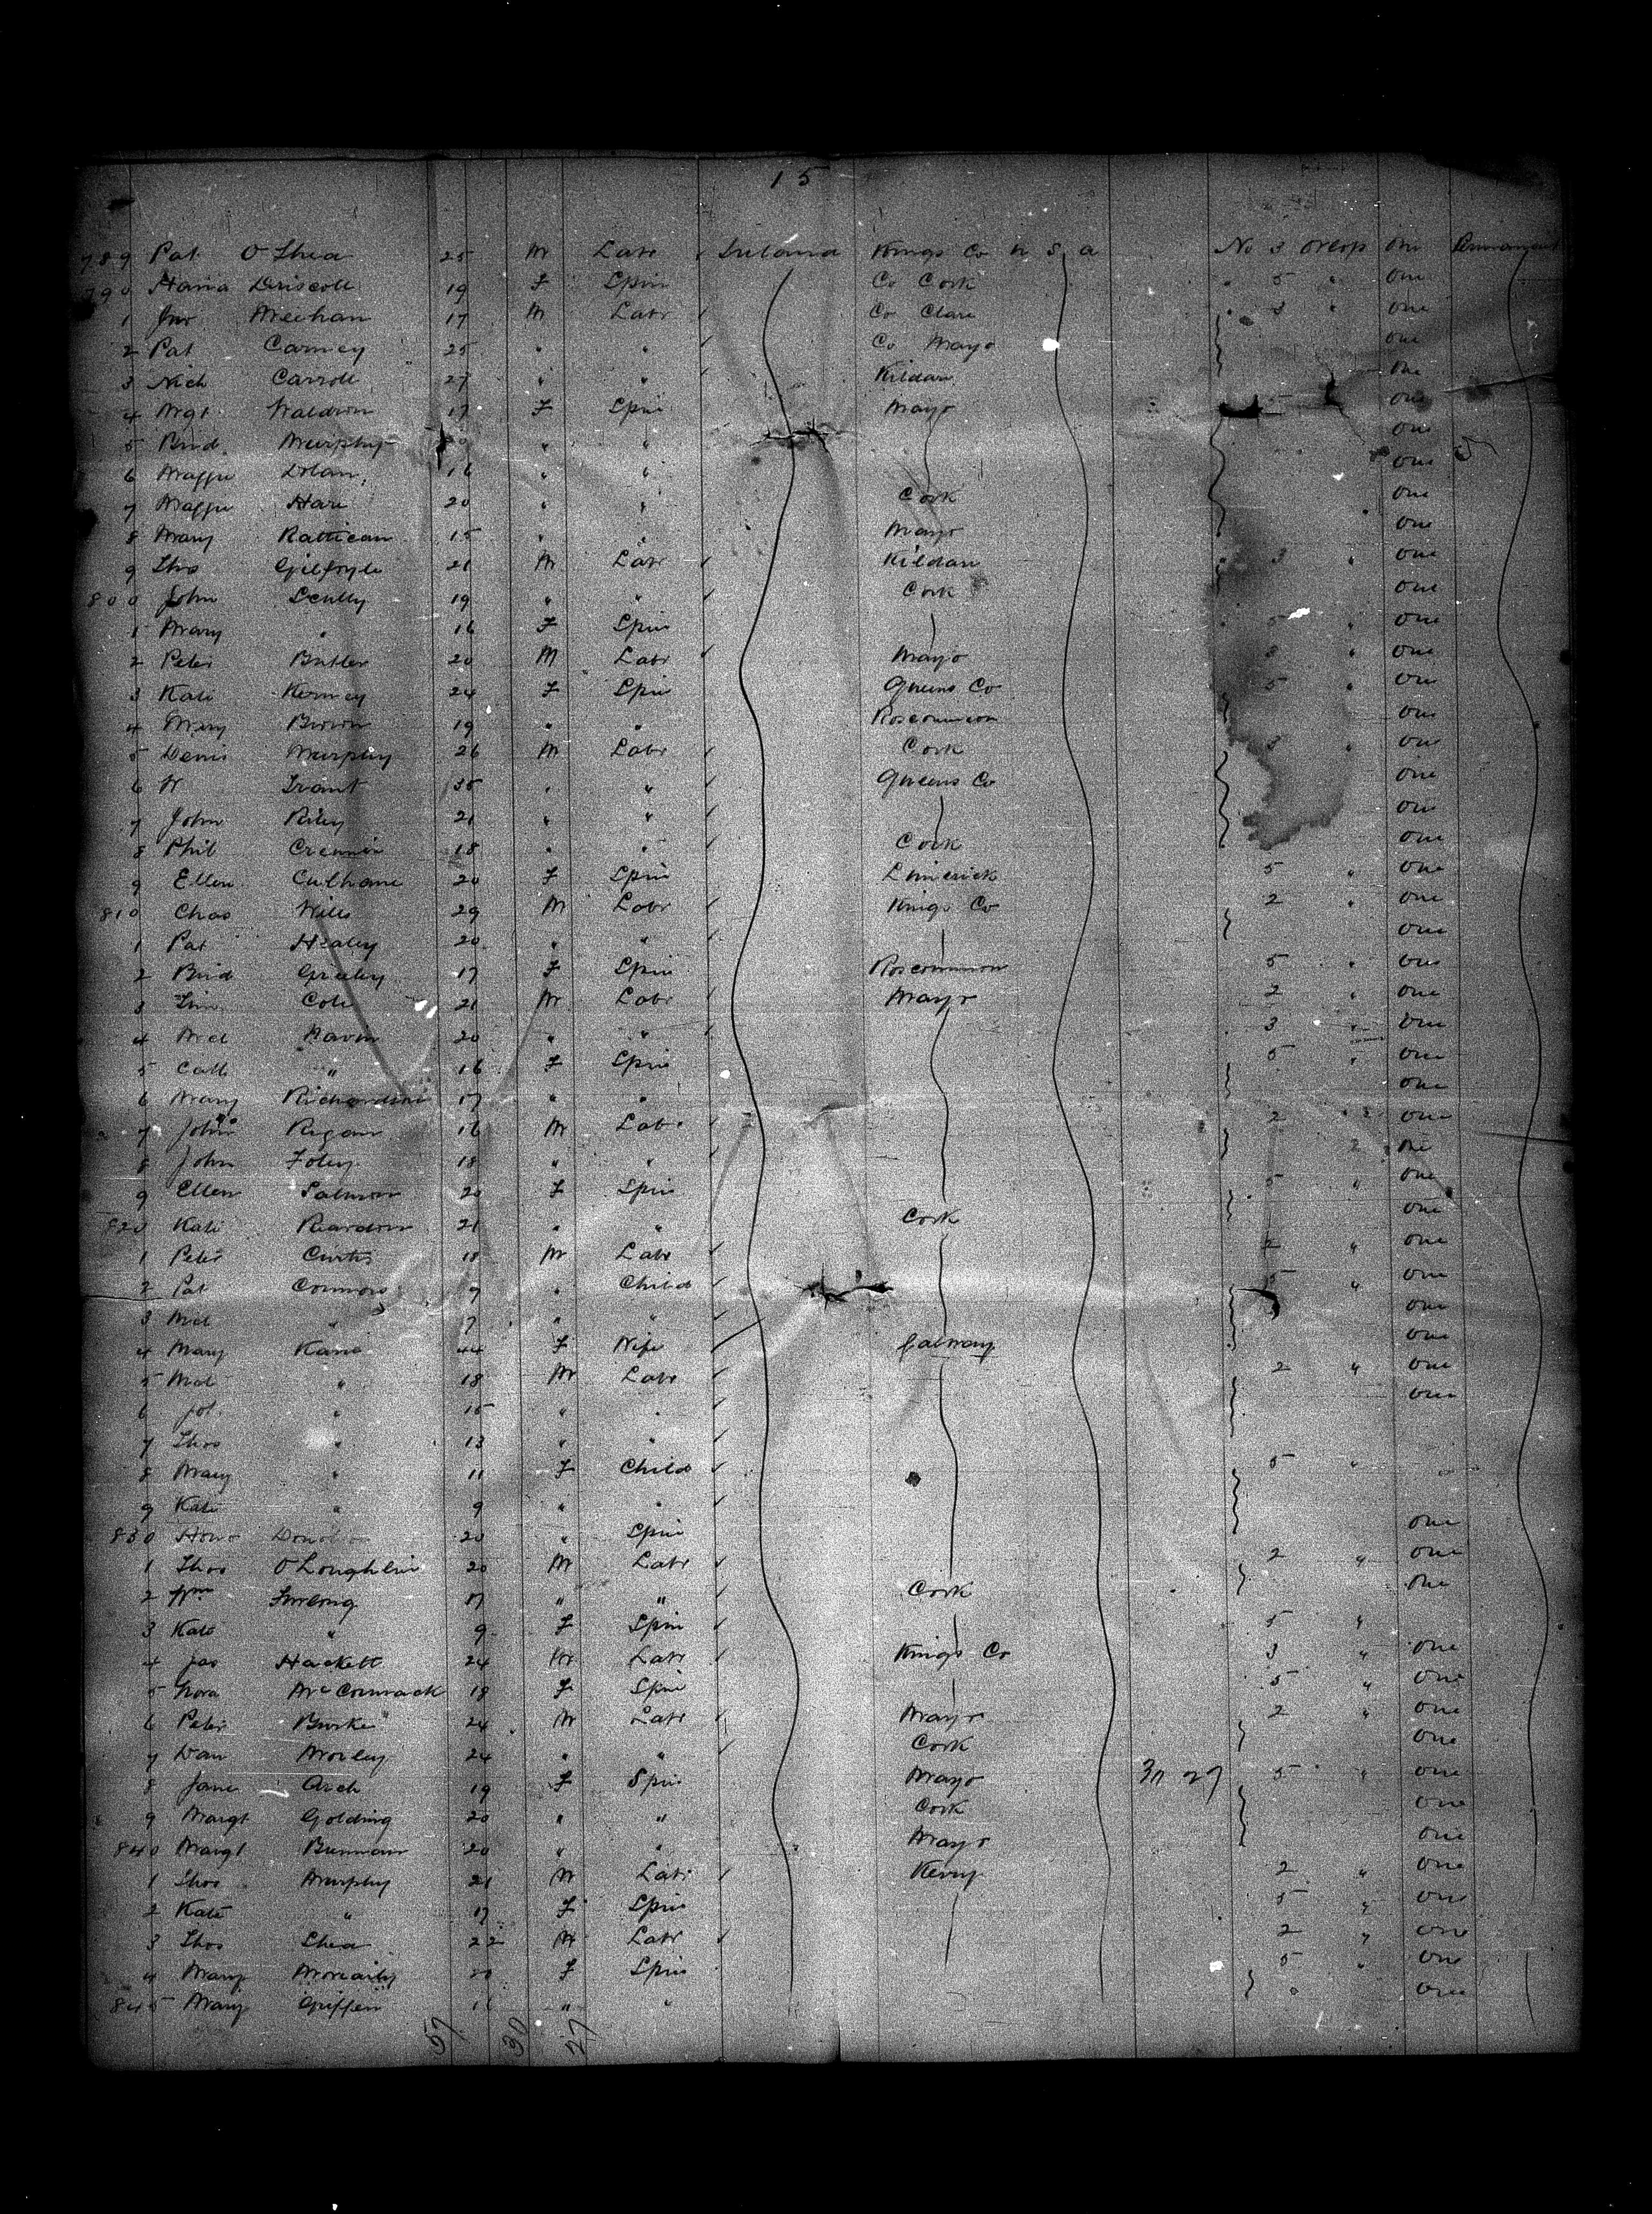 15
789 Pat O Shea 25 M Labr Ireland Kings Co U S A No 3 Orlop One Permanent
790 Hana Driscoll 19 F Spin Co Cork " 5 " One
1 Jno Meehan 17 M Labr Co Clare " 3 " One
2 Pat Carney 25 " " Co Mayo One
3 Nich Carroll 27 " " Kildare One
4 Mgt Waldron 17 F Spin Mayo 5 One
5 Brid Murphy " " One
6 Maggie Dolan 16 " " One
7 Maggie Hare 20 " " Cork One
8 Mary Rattican 15 " " Mayo One
9 Thos Gilfoyle 21 M Labr Kildare 3 " One
800 John Scully 19 " " Cork One
1 Mary " 16 F Spin 5 " One
2 Peter Butler 20 M Labr Mayo 3 " One
3 Kate Kerney 24 F Spin Queens Co 5 " One
4 Mary Brown 19 " " Roscommon One
5 Denis Murphy 26 M Labr Cork " One
6 W Trant 35 " " Queens Co One
7 John Riley 21 " " One
8 Phil Cremin 18 " " Cork One
9 Ellen Culhane 20 F Spin Limerick 5 " One
810 Chas Wills 29 M Labr Kings Co 2 " One
1 Pat Healey 20 " " One
2 Brid Greeley 17 F Spin Roscommon 5 " One
3 Tim Cole 21 M Labr Mayo 2 " One
4 Mcl Navin 20 " " 3 " One
5 Cath " 16 F Spin 5 " One
6 Mary Richardson 17 " " One
7 John Regan 16 M Labr 2 " One
8 John Foley 18 " " One
9 Ellen Salmon 20 F Spin 5 " One
820 Kate Reardon 21 " " Cork One
1 Peter Curtis 18 M Labr 2 " One
2 Pat Connors 9 " Child 5 " One
3 Mcl " 7 " " One
4 Mary Kane 44 F Wife Galway One
5 Mcl " 18 M Labr 2 " One
6 " 15 " " One
7 Thos " 13 " "
8 Mary " 11 F Child 5 "
9 Kate " 9 " "
830 20 " Spin One
1 Thos O Loughlin 20 M Labr 2 " One
2 Wm Furlong " " Cork One
3 Kate " 9 F Spin 5 "
4 Jas Hackett 24 M Labr Kings Co 3 " One
5 Nora McCormack 18 F Spin 5 " One
6 Peter Burke 24 M Labr Mayo 2 " One
7 Dan 24 " " Cork One
8 Jane 19 F Spin Mayo 30 27 5 " One
9 Margt Golding 20 " " Cork One
840 Margt 20 " " Mayo One
1 Thos Murphy 21 M Labr Kerry 2 " One
2 Kate " 17 F Spin 5 " One
3 Thos Shea 22 M Labr 2 " One
4 Mary Moriarty 20 F Spin 5 " One
845 Mary Griffen " " One
57 30 27